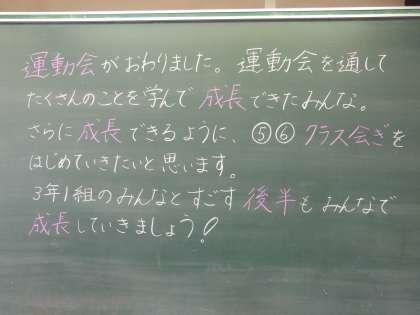 運動会がおわりました。運動会を通して
たくさんのことを学んで成長できたみんな。
さらに成長できるように、⑤⑥クラス会ぎを
はじめていきたいと思います。
3年1組のみんなとすごす後半もみんなで
成長していきましょう!